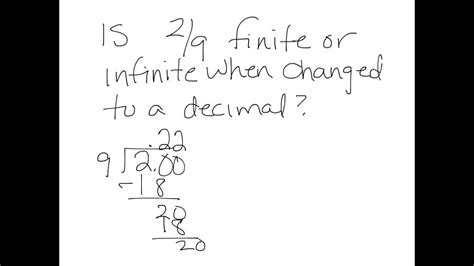 Is 2/9 finite or
infinite when changed
to a decimal?
.22
9 2.00
-18
20
18
20